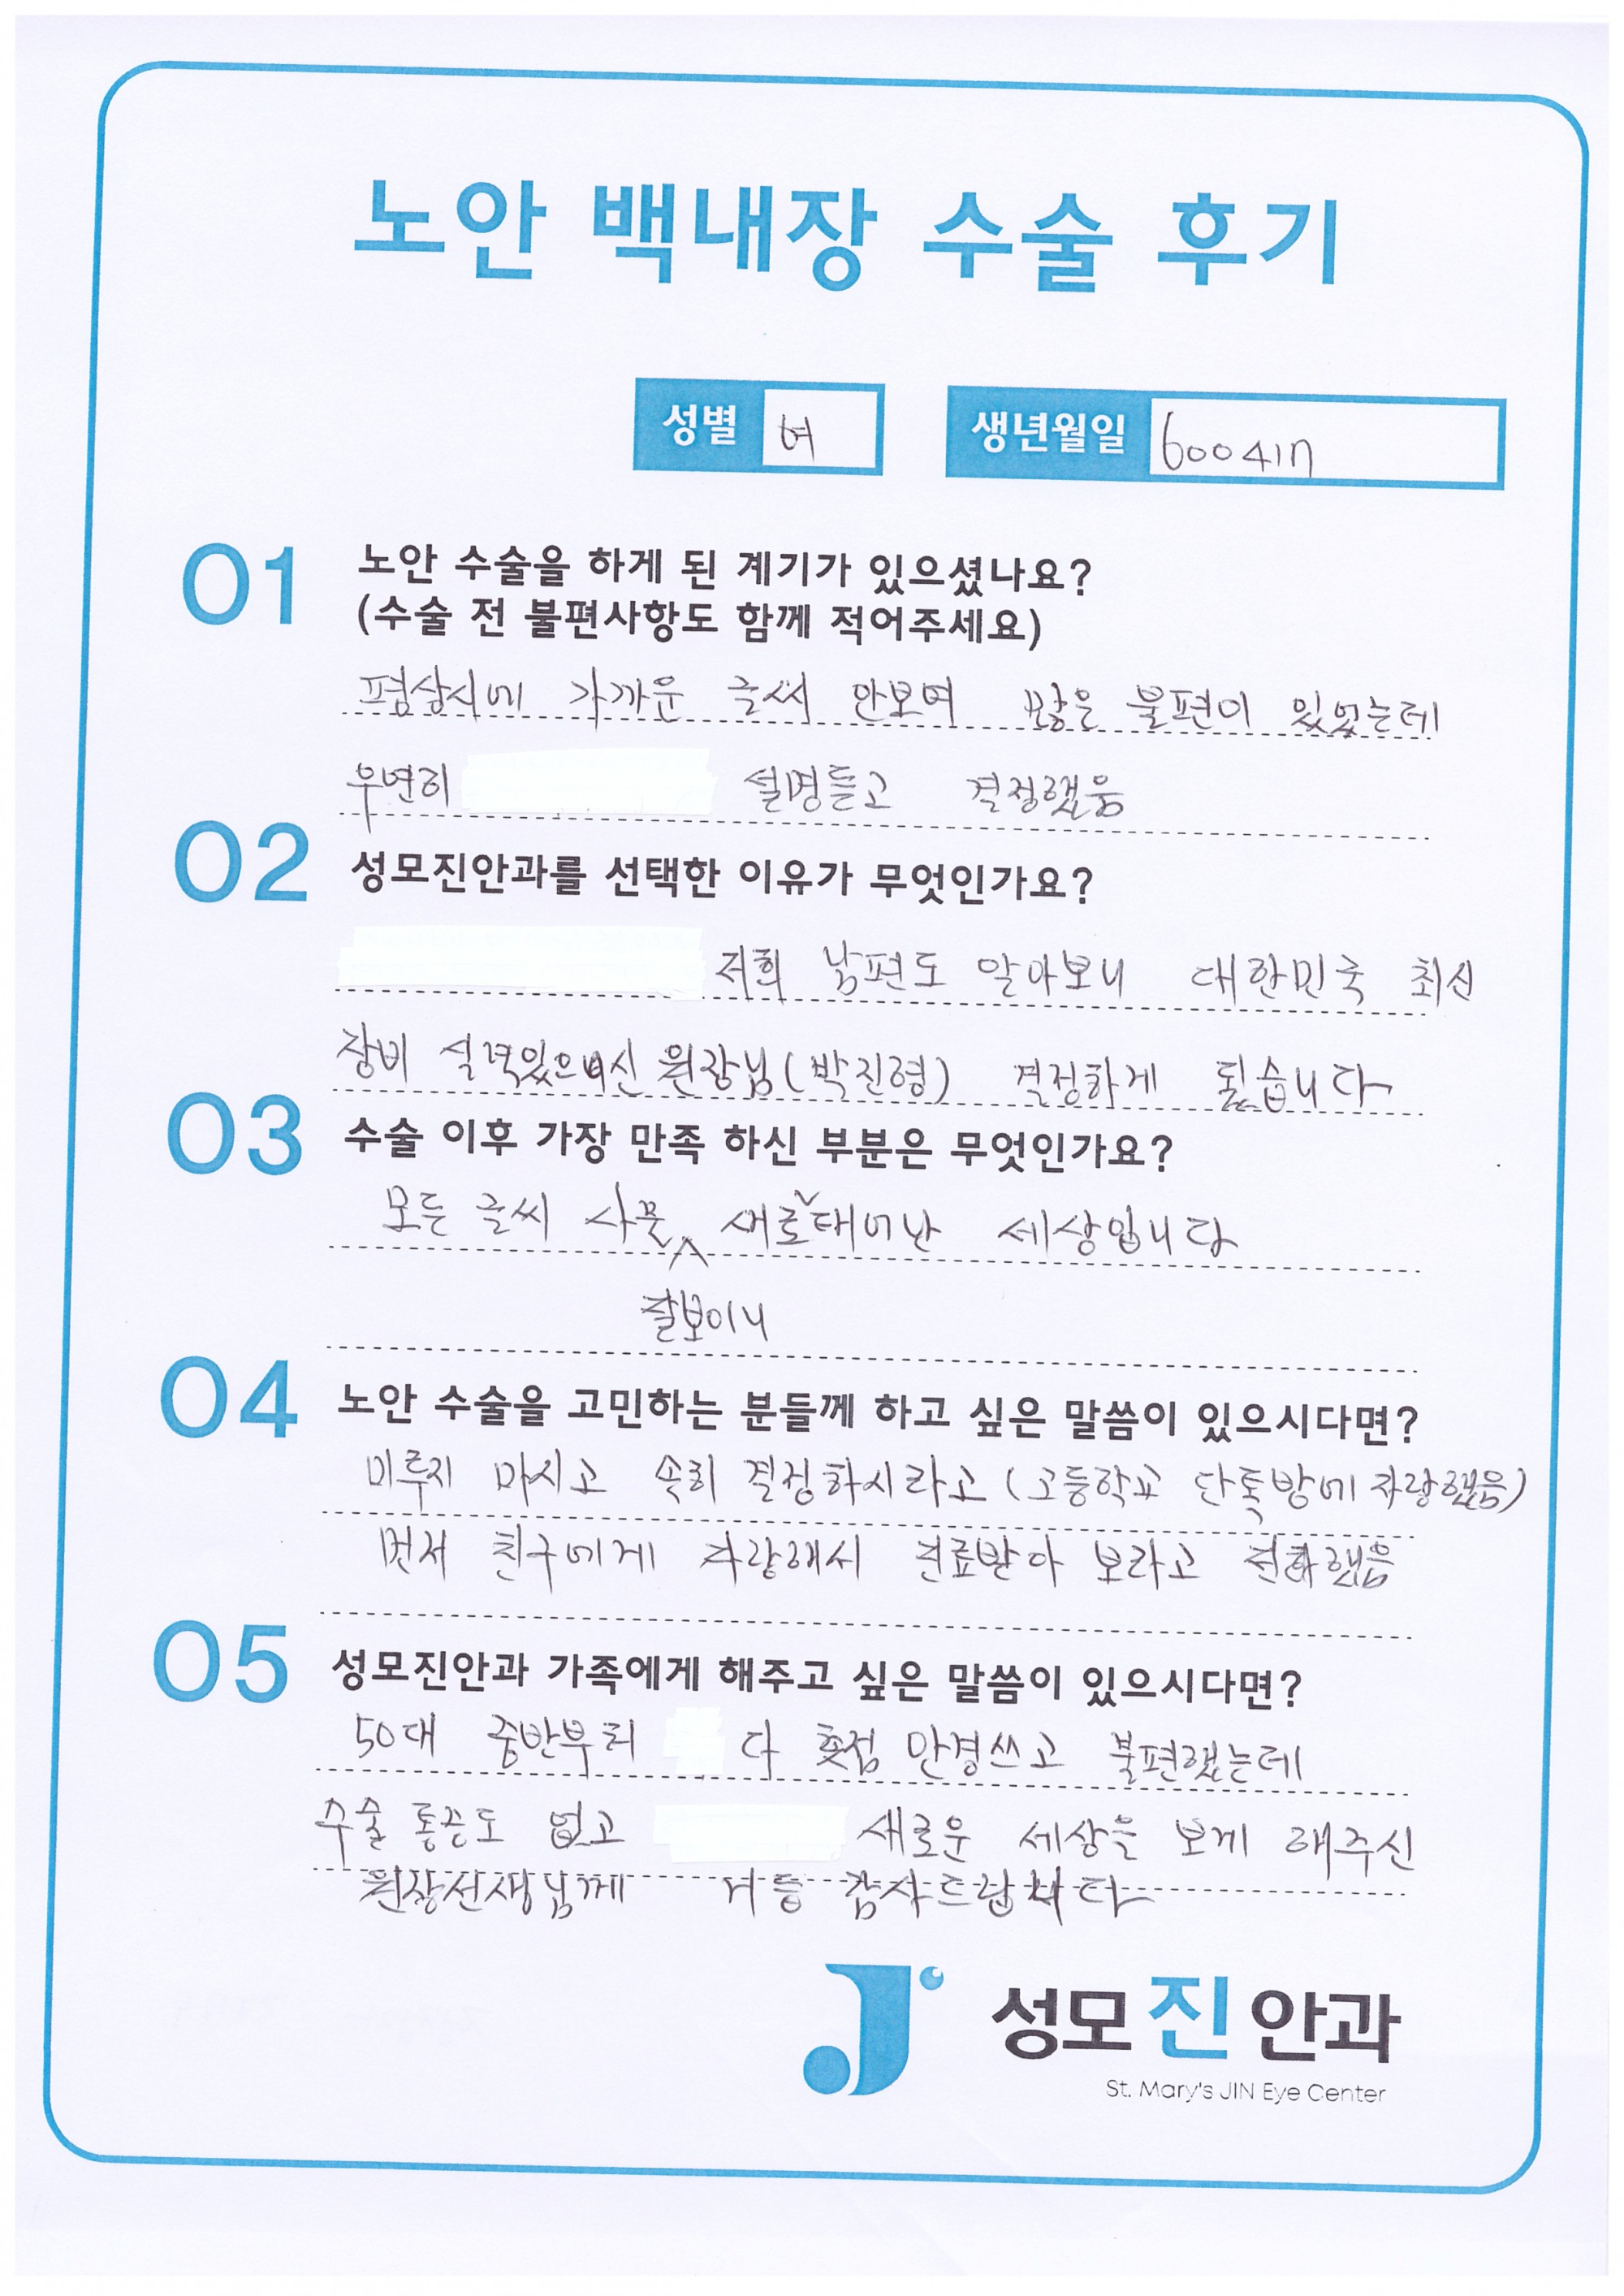 노안 백내장 수술 후기
성별 여 생년월일 600417
01 노안 수술을 하게 된 계기가 있으셨나요?
(수술 전 불편사항도 함께 적어주세요)
평상시에 가까운 글씨 안보여 많은 불편이 있었는데
우연히 설명듣고 결정했음
02 성모진안과를 선택한 이유가 무엇인가요?
저희 남편도 알아보니 대한민국 최신
장비 실력있으신 원장님(박진형) 결정하게 됬습니다
03 수술 이후 가장 만족 하신 부분은 무엇인가요?
모든 글씨 사물 새로 태어난 세상입니다
잘보이니
04 노안 수술을 고민하는 분들께 하고 싶은 말씀이 있으시다면?
미루지 마시고 속히 결정하시라고 (고등학교 단톡방에 자랑했음)
먼저 친구에게 자랑해서 진료받아 보라고 전화했음
05 성모진안과 가족에게 해주고 싶은 말씀이 있으시다면?
50대 중반부터 다촛점 안경쓰고 불편했는데
수술 통증도 없고 새로운 세상을 보게 해주신
원장선생님께 거듭 감사드립니다
성모진안과
St. Mary's JIN Eye Center